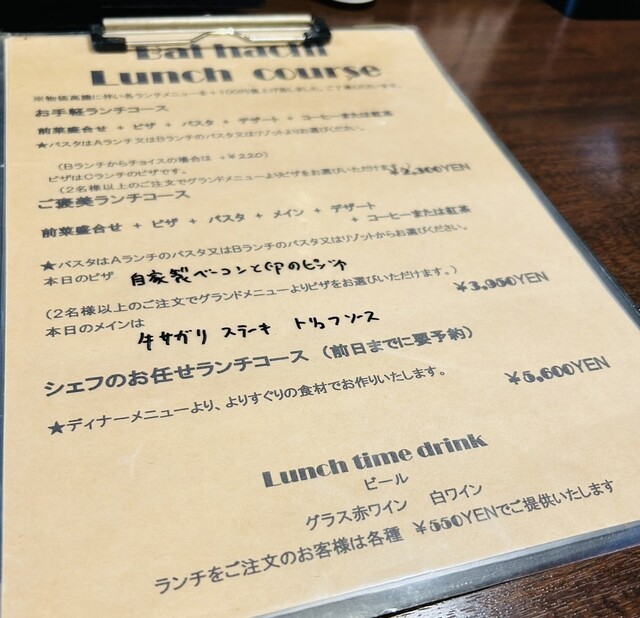 Bal hachi
Lunch course
※物価高騰に伴い各ランチメニューを+100円値上げ致しました。ご了承くださいませ。
お手軽ランチコース
前菜盛合せ + ピザ + パスタ + デザート + コーヒーまたは紅茶
★パスタはAランチ又はBランチのパスタ又はリゾットよりお選びください。
(Bランチからチョイスの場合は +¥220)
ピザはCランチのピザです。
(2名様以上のご注文でグランドメニューよりピザをお選びいただけます。)
¥2,300YEN
ご褒美ランチコース
前菜盛合せ + ピザ + パスタ + メイン + デザート
+ コーヒーまたは紅茶
★パスタはAランチのパスタ又はBランチのパスタ又はリゾットからお選びください。
本日のピザ 自家製ベーコンと卵のピザ
(2名様以上のご注文でグランドメニューよりピザをお選びいただけます。)
¥3,950YEN
本日のメインは
牛サガリ ステーキ トリュフソース
シェフのお任せランチコース (前日までに要予約)
¥5,600YEN
★ディナーメニューより、よりすぐりの食材でお作りいたします。
Lunch time drink
ビール
グラス赤ワイン 白ワイン
ランチをご注文のお客様は各種 ¥550YENでご提供いたします